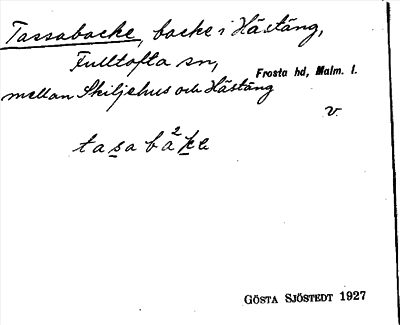 Tassabacke, backe i Hästäng,
Fulltofta sn,
Frosta hd, Malm. l.
mellan Skiljehus och Hästäng
v.
tasaba²ke
GÖSTA SJÖSTEDT 1927